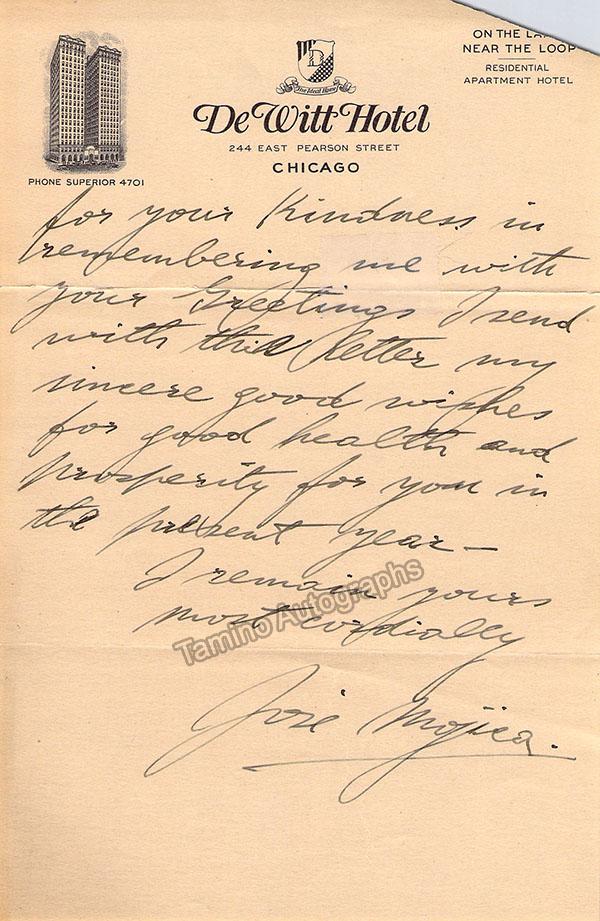 ON THE LA
NEAR THE LOOP
RESIDENTIAL
APARTMENT HOTEL
D
De Witt Hotel
244 EAST PEARSON STREET
CHICAGO
PHONE SUPERIOR 4701
for your kindness in
remembering me with
your Greetings I send
with this letter my
sincere good wishes
for good health and
prosperity for you in
the present year—
I remain yours
most cordially
José Mojica.
Tamino Autographs